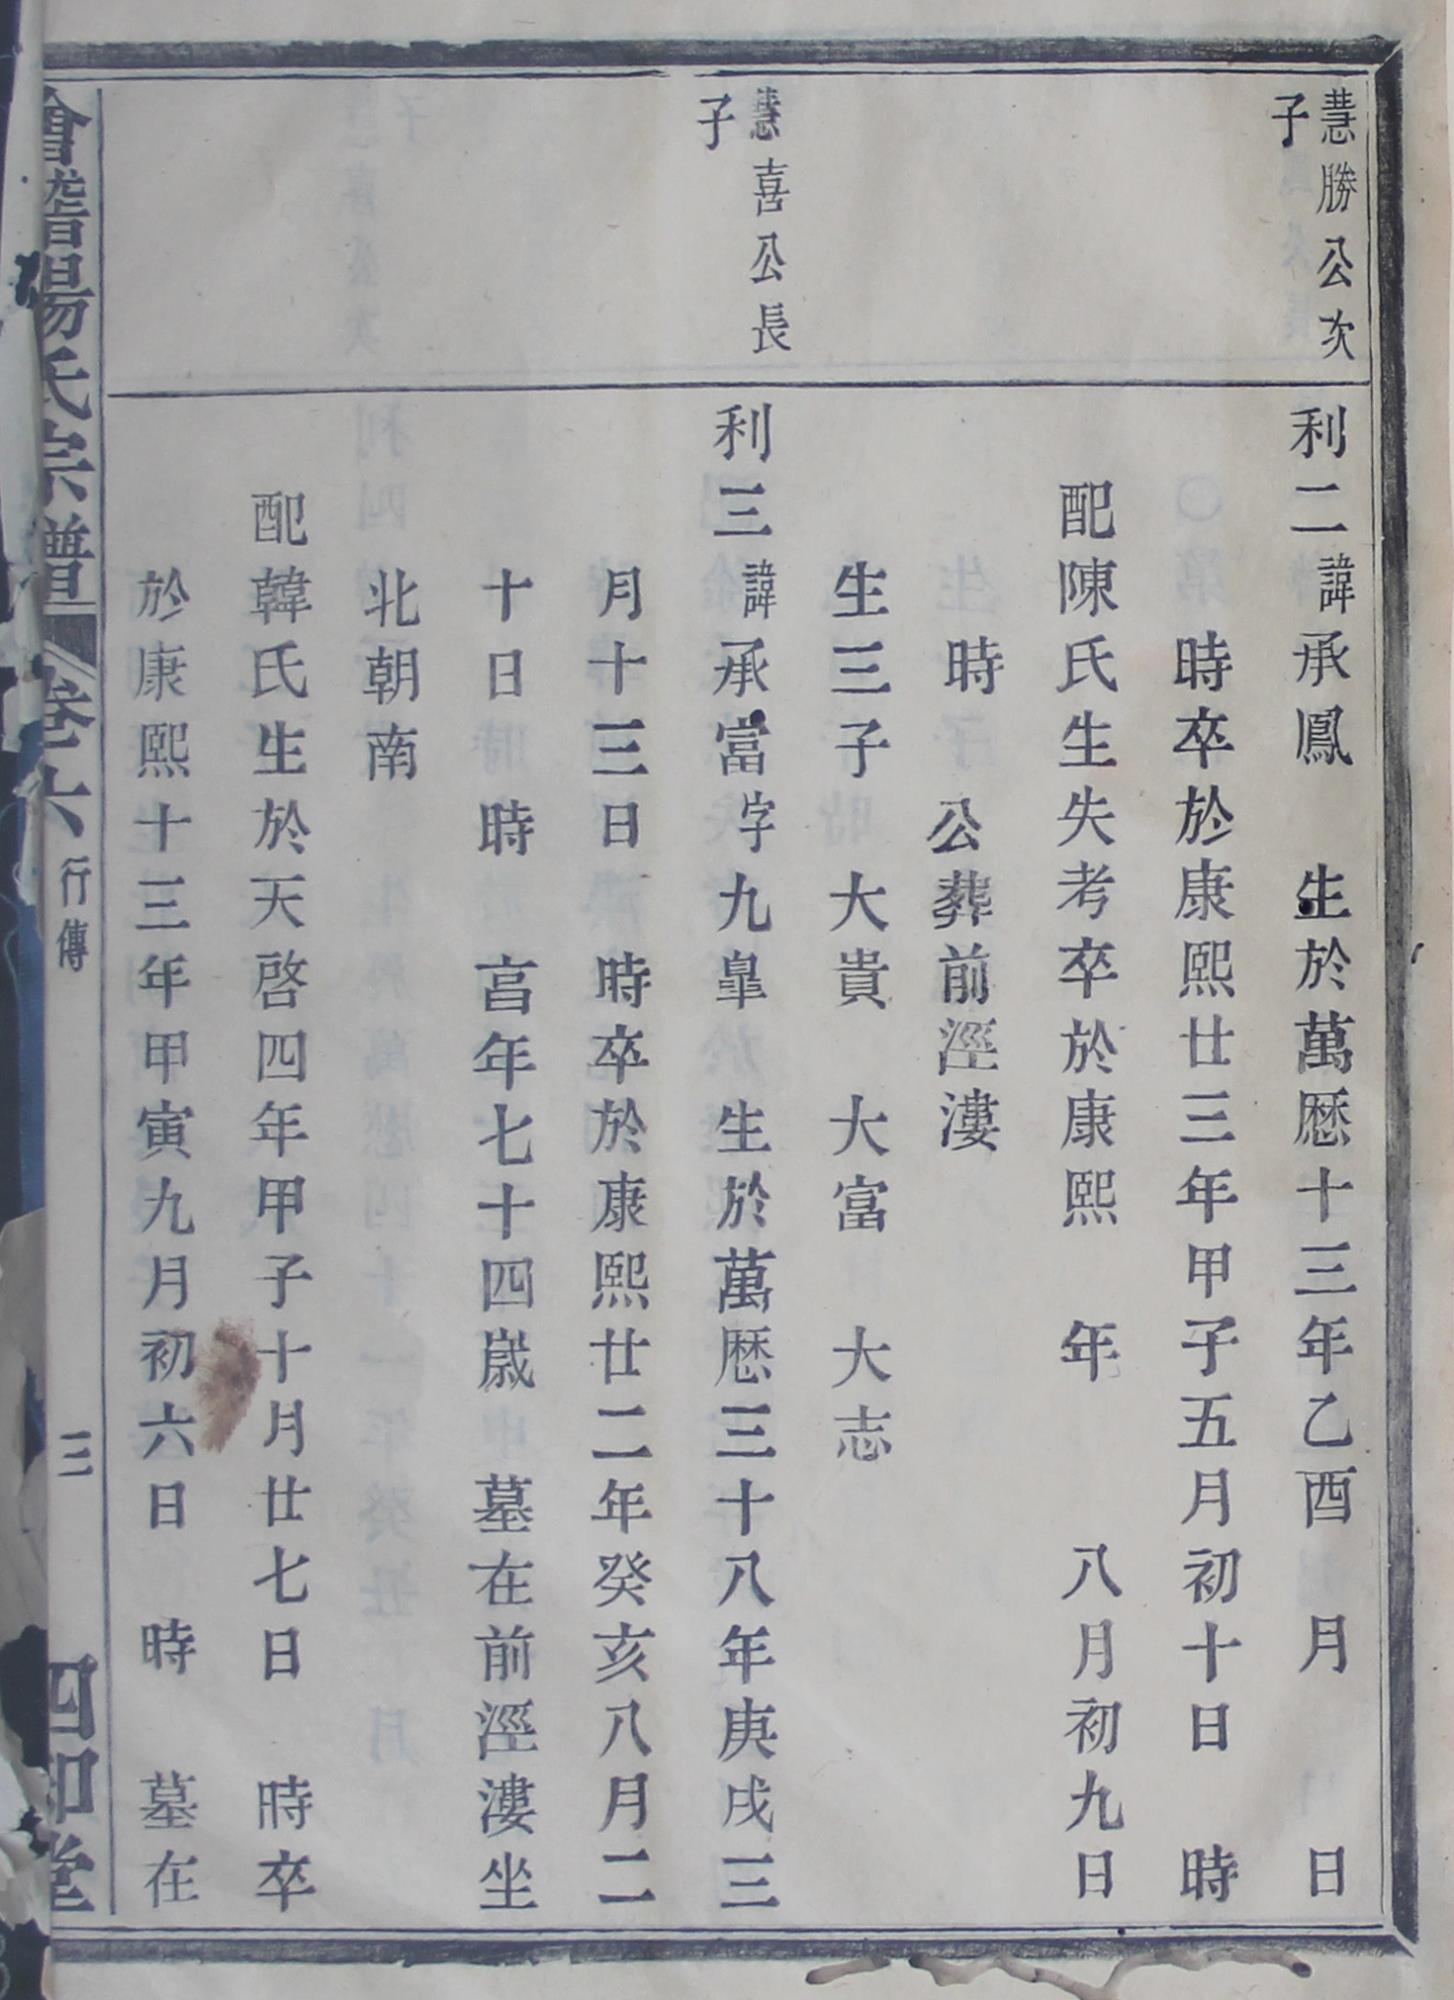 慧勝公次
子
利二諱承鳳 生於萬歷十三年乙酉 月 日
時卒於康熙廿三年甲子五月初十日 時
配陳氏生失考卒於康熙 年 八月初九日
時 公葬前涇漊
生三子 大貴 大富 大志
慧喜公長
子
利三諱承富字九臯 生於萬歷三十八年庚戌三
月十三日 時卒於康熙廿二年癸亥八月二
十日時 言年七十四歲 墓在前涇漊坐
北朝南
配韓氏生於天啓四年甲子十月廿七日 時卒
於康熙十三年甲寅九月初六日 時 墓在
會稽楊氏宗譜 卷六 行傳 三 四知堂